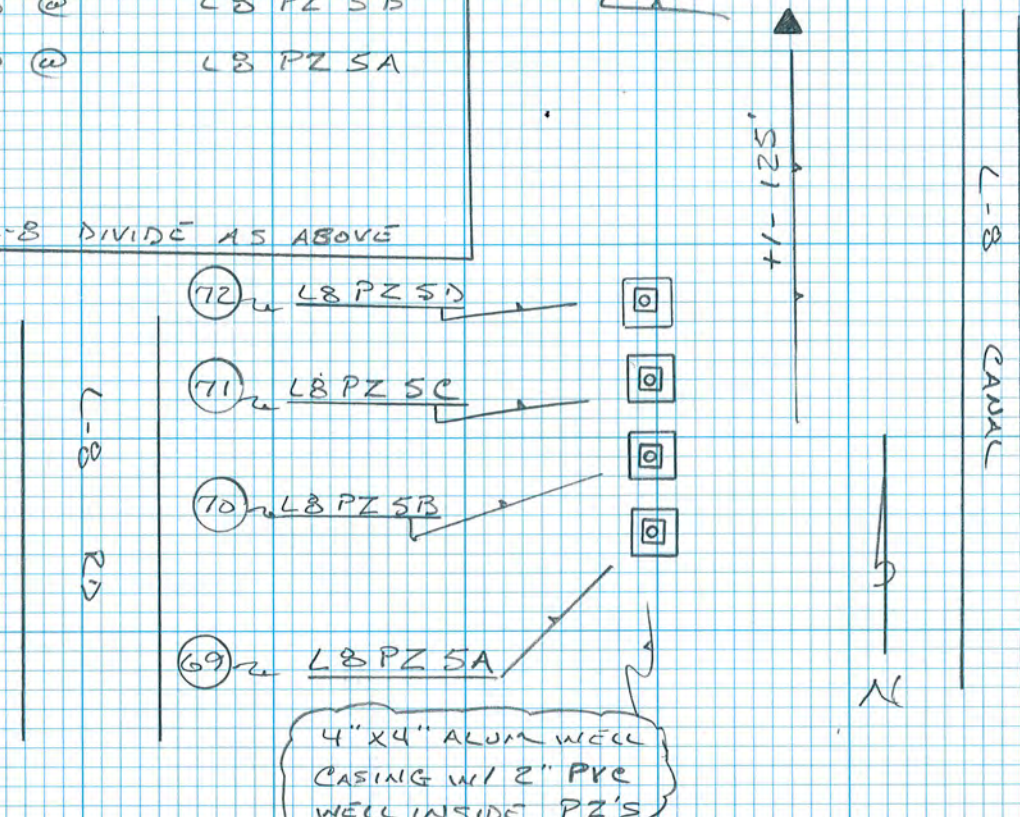 @ L8 PZ 5B
@ L8 PZ 5A
-8 DIVIDE AS ABOVE
+/- 125'
72 L8 PZ 5D
71 L8 PZ 5C
70 L8 PZ 5B
69 L8 PZ 5A
L-8 RD
L-8 CANAL
N
4" X4" ALUM WELL
CASING W/ 2" PVC
WELL INSIDE PZ'S